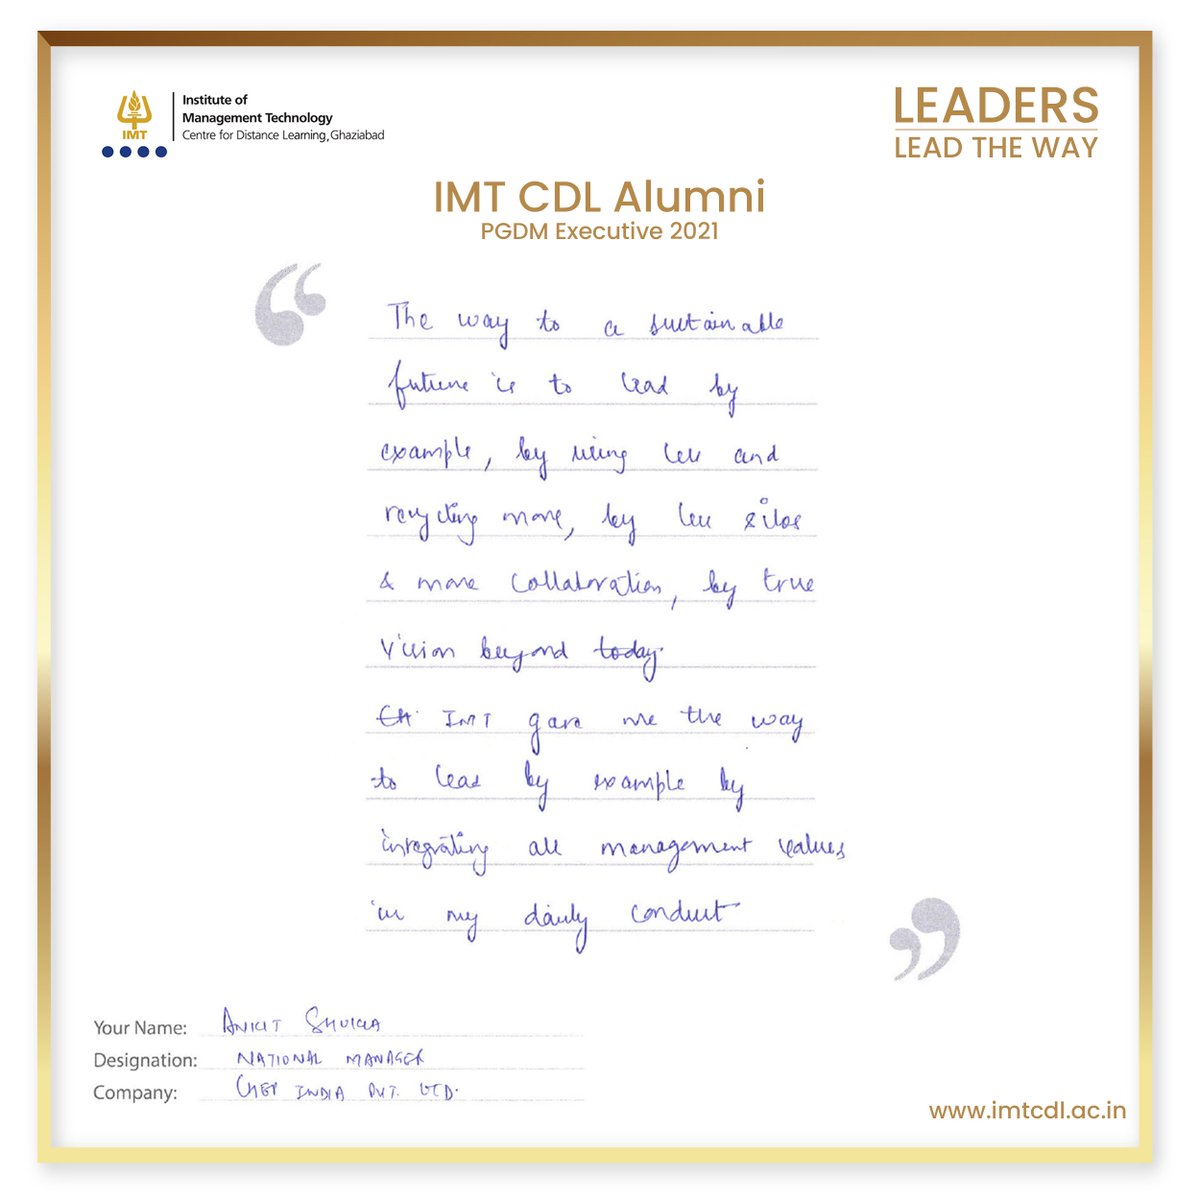 Institute of
Management Technology
Centre for Distance Learning, Ghaziabad
IMT
LEADERS
LEAD THE WAY
IMT CDL Alumni
PGDM Executive 2021
The way to a sustainable
future is to lead by
example, by using less and
recycling more, by less silos
& more collaboration, by true
vision beyond today.
IMT gave me the way
to lead by example by
integrating all management values
in my daily conduct
Your Name: ANKIT SHUKLA
Designation: NATIONAL MANAGER
Company: CHEP INDIA PVT. LTD.
www.imtcdl.ac.in